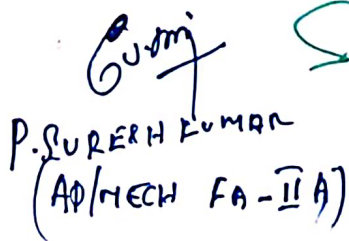 P. SURESH KUMAR
(AP/MECH FA-II A)